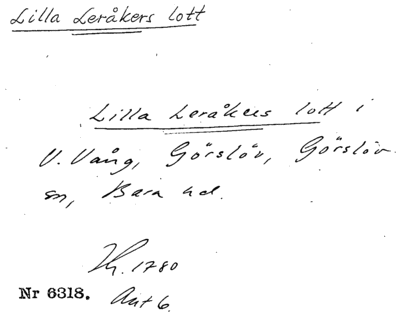 Lilla Leråkers lott
Lilla Leråkers lott i
V. Vång, Görslöv, Görslöv
sn, Bara hd.
Hy. 1780
Nr 6318. Akt 6.